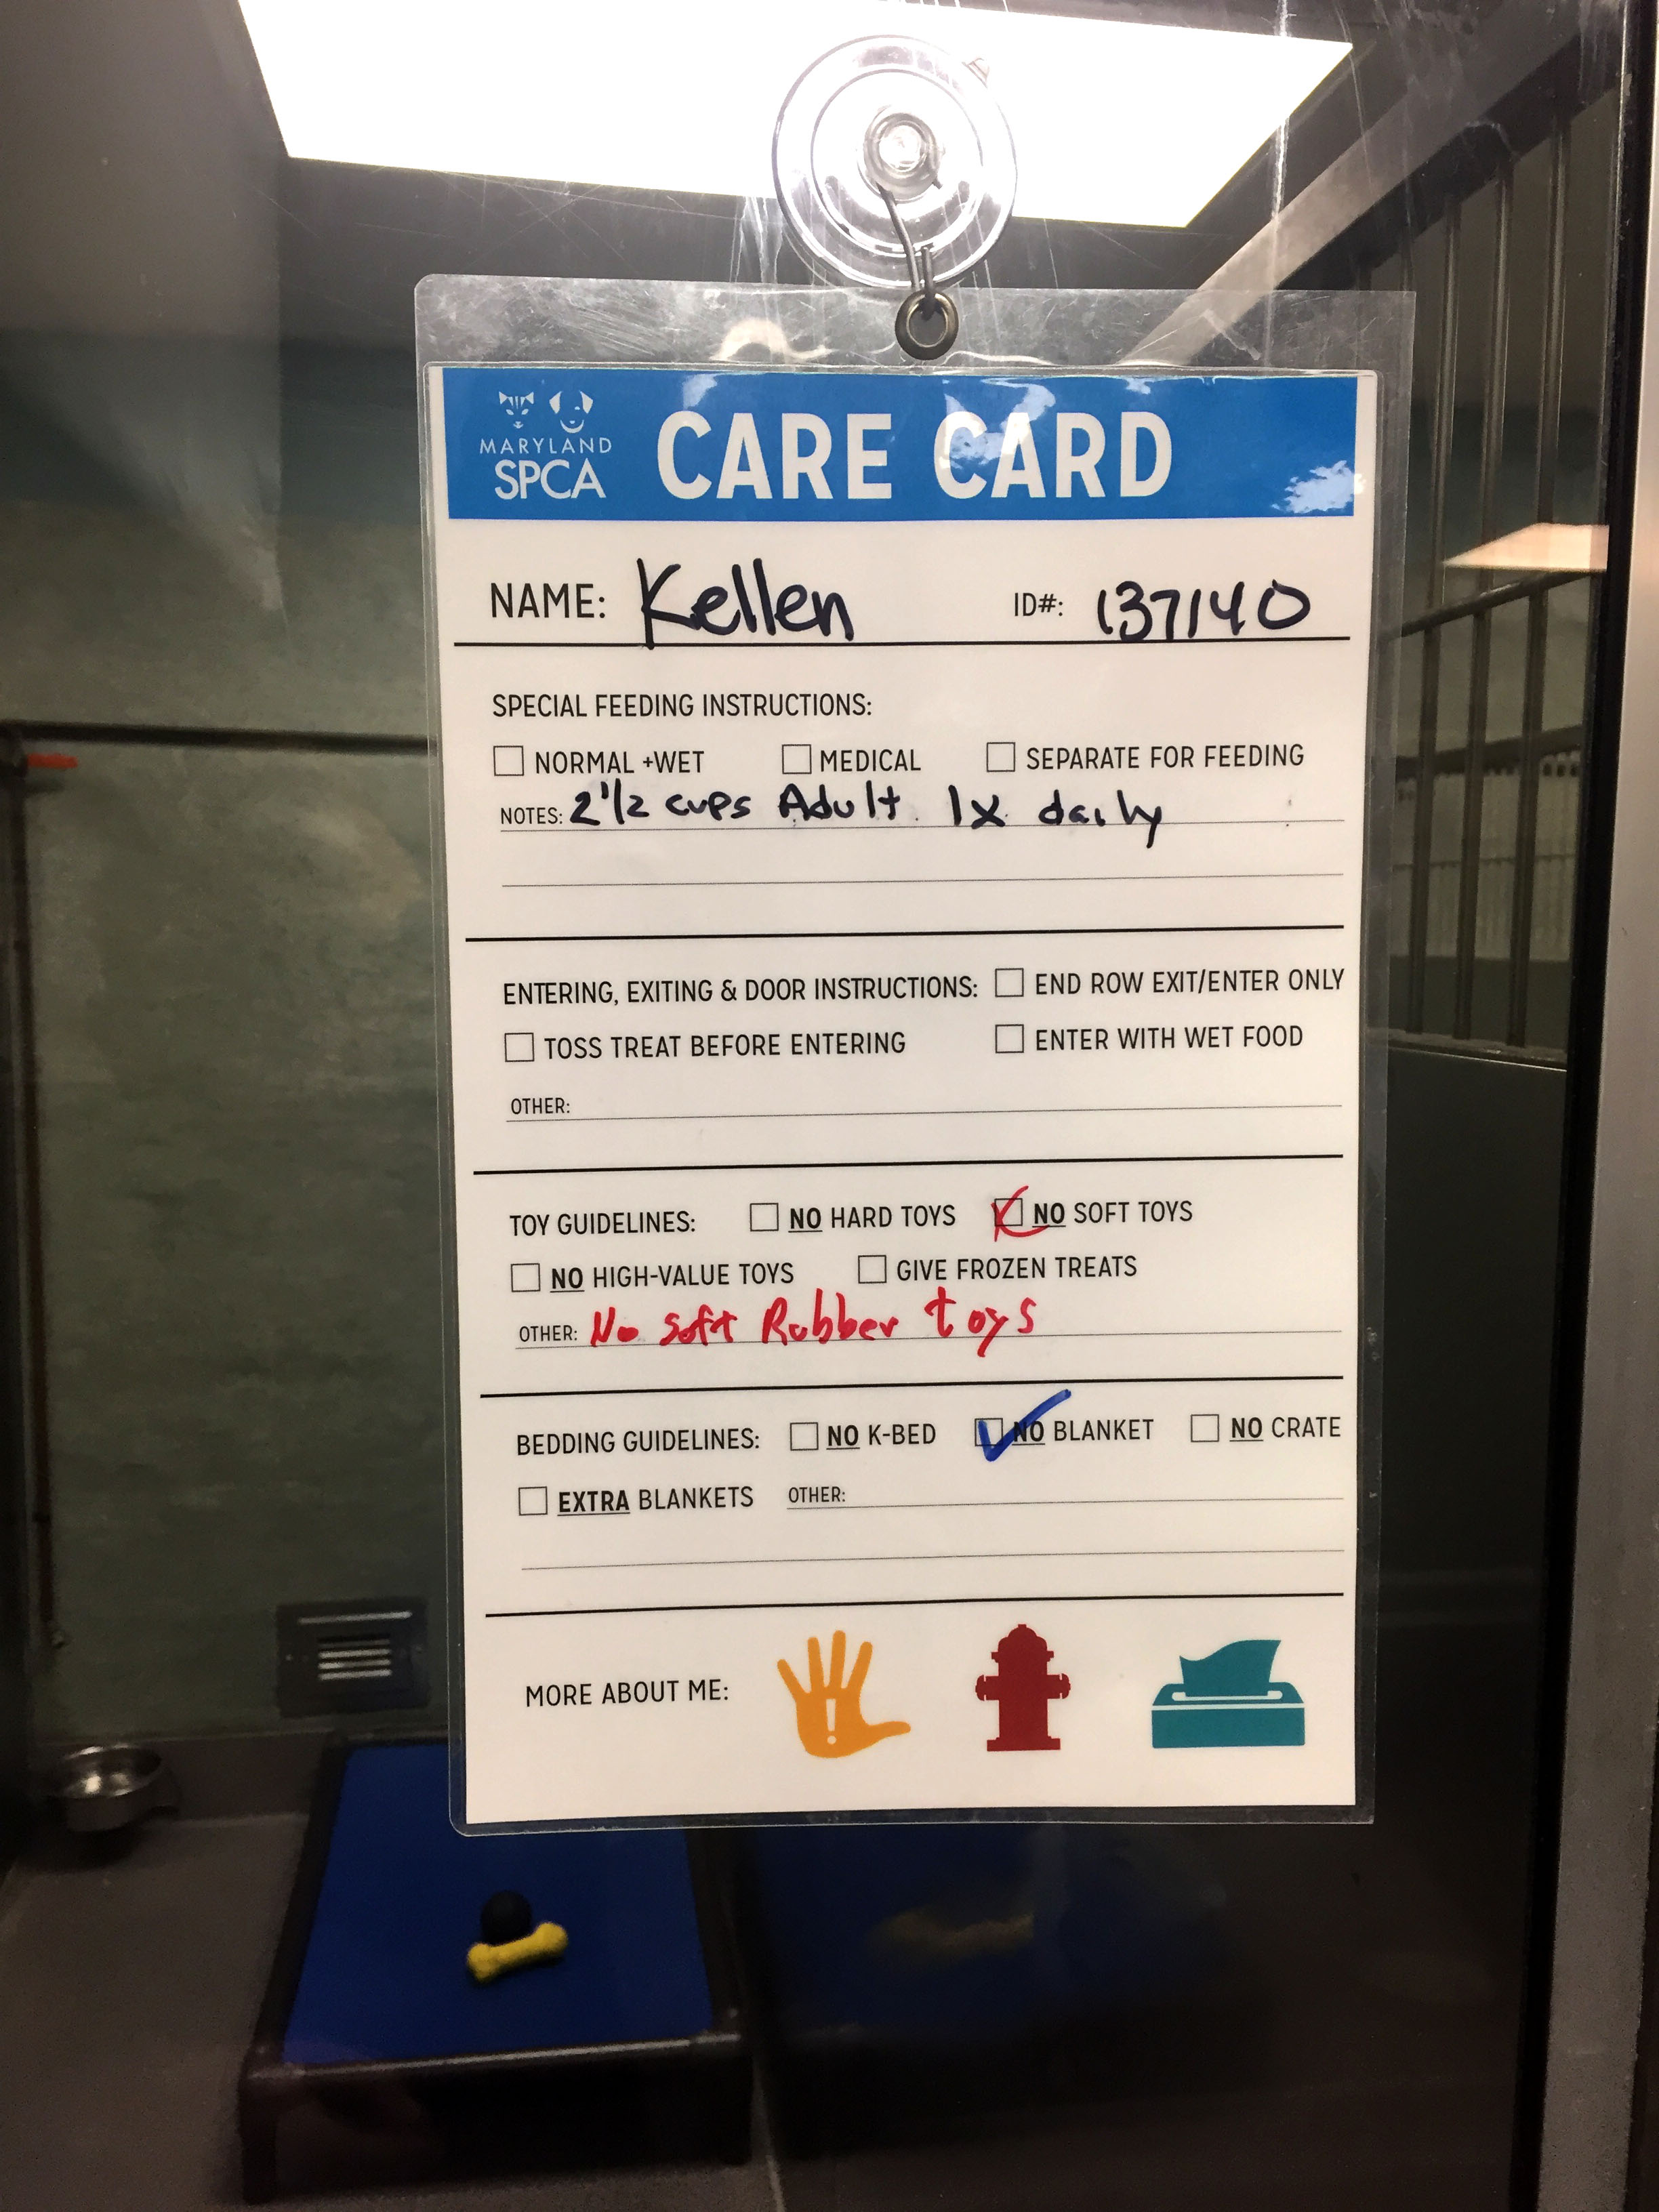 MARYLAND
SPCA
CARE CARD
NAME: Kellen ID#: 137140
SPECIAL FEEDING INSTRUCTIONS:
NORMAL +WET MEDICAL SEPARATE FOR FEEDING
NOTES: 2 1/2 cups Adult 1x daily
ENTERING, EXITING & DOOR INSTRUCTIONS: END ROW EXIT/ENTER ONLY
TOSS TREAT BEFORE ENTERING ENTER WITH WET FOOD
OTHER:
TOY GUIDELINES: NO HARD TOYS NO SOFT TOYS
NO HIGH-VALUE TOYS GIVE FROZEN TREATS
OTHER: No soft Rubber toys
BEDDING GUIDELINES: NO K-BED NO BLANKET NO CRATE
EXTRA BLANKETS OTHER:
MORE ABOUT ME: